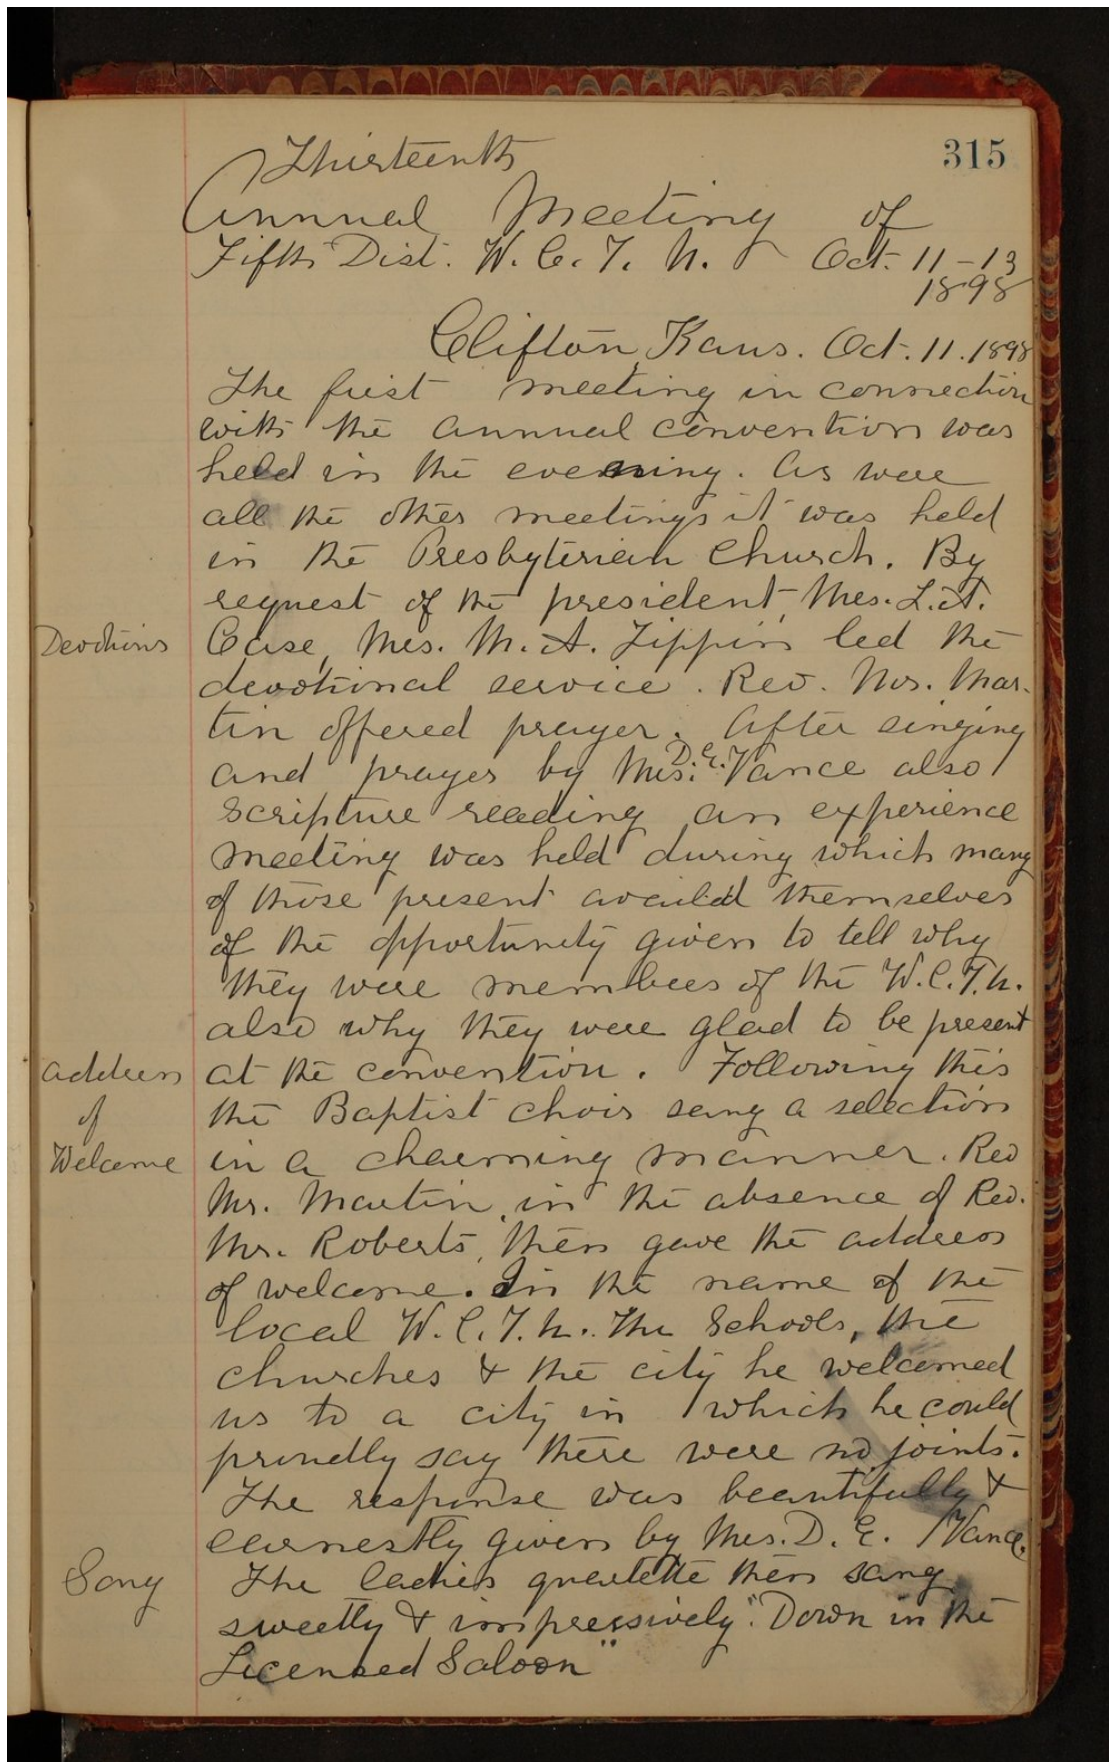 315
Thirteenth
Annual Meeting of
Fifth Dist. W. C. T. U. Oct. 11-13
1898
Clifton, Kans. Oct. 11. 1898
The first meeting in connection
with the annual convention was
held in the evening. As were
all the other meetings it was held
in the Presbyterian Church. By
request of the president, Mrs. L. A.
Devotions
Case, Mrs. M. A. Tippin led the
devotional service. Rev. Mr. Mar-
tin offered prayer. After singing
and prayer by Mrs. D. E. Vance also
scripture reading an experience
meeting was held during which many
of those present availed themselves
of the opportunity given to tell why
they were members of the W. C. T. U.
also why they were glad to be present
Address
at the convention. Following this
of
the Baptist choir sang a selection
Welcome
in a charming manner. Rev
Mr. Martin, in the absence of Rev.
Mr. Roberts, then gave the address
of welcome. In the name of the
local W. C. T. U. The Schools, the
churches & the city he welcomed
us to a city in which he could
proudly say there were no joints.
The response was beautifully &
earnestly given by Mrs. D. E. Vance.
Song
The ladies quartette then sang
sweetly & impressively. "Down in the
Licensed Saloon"